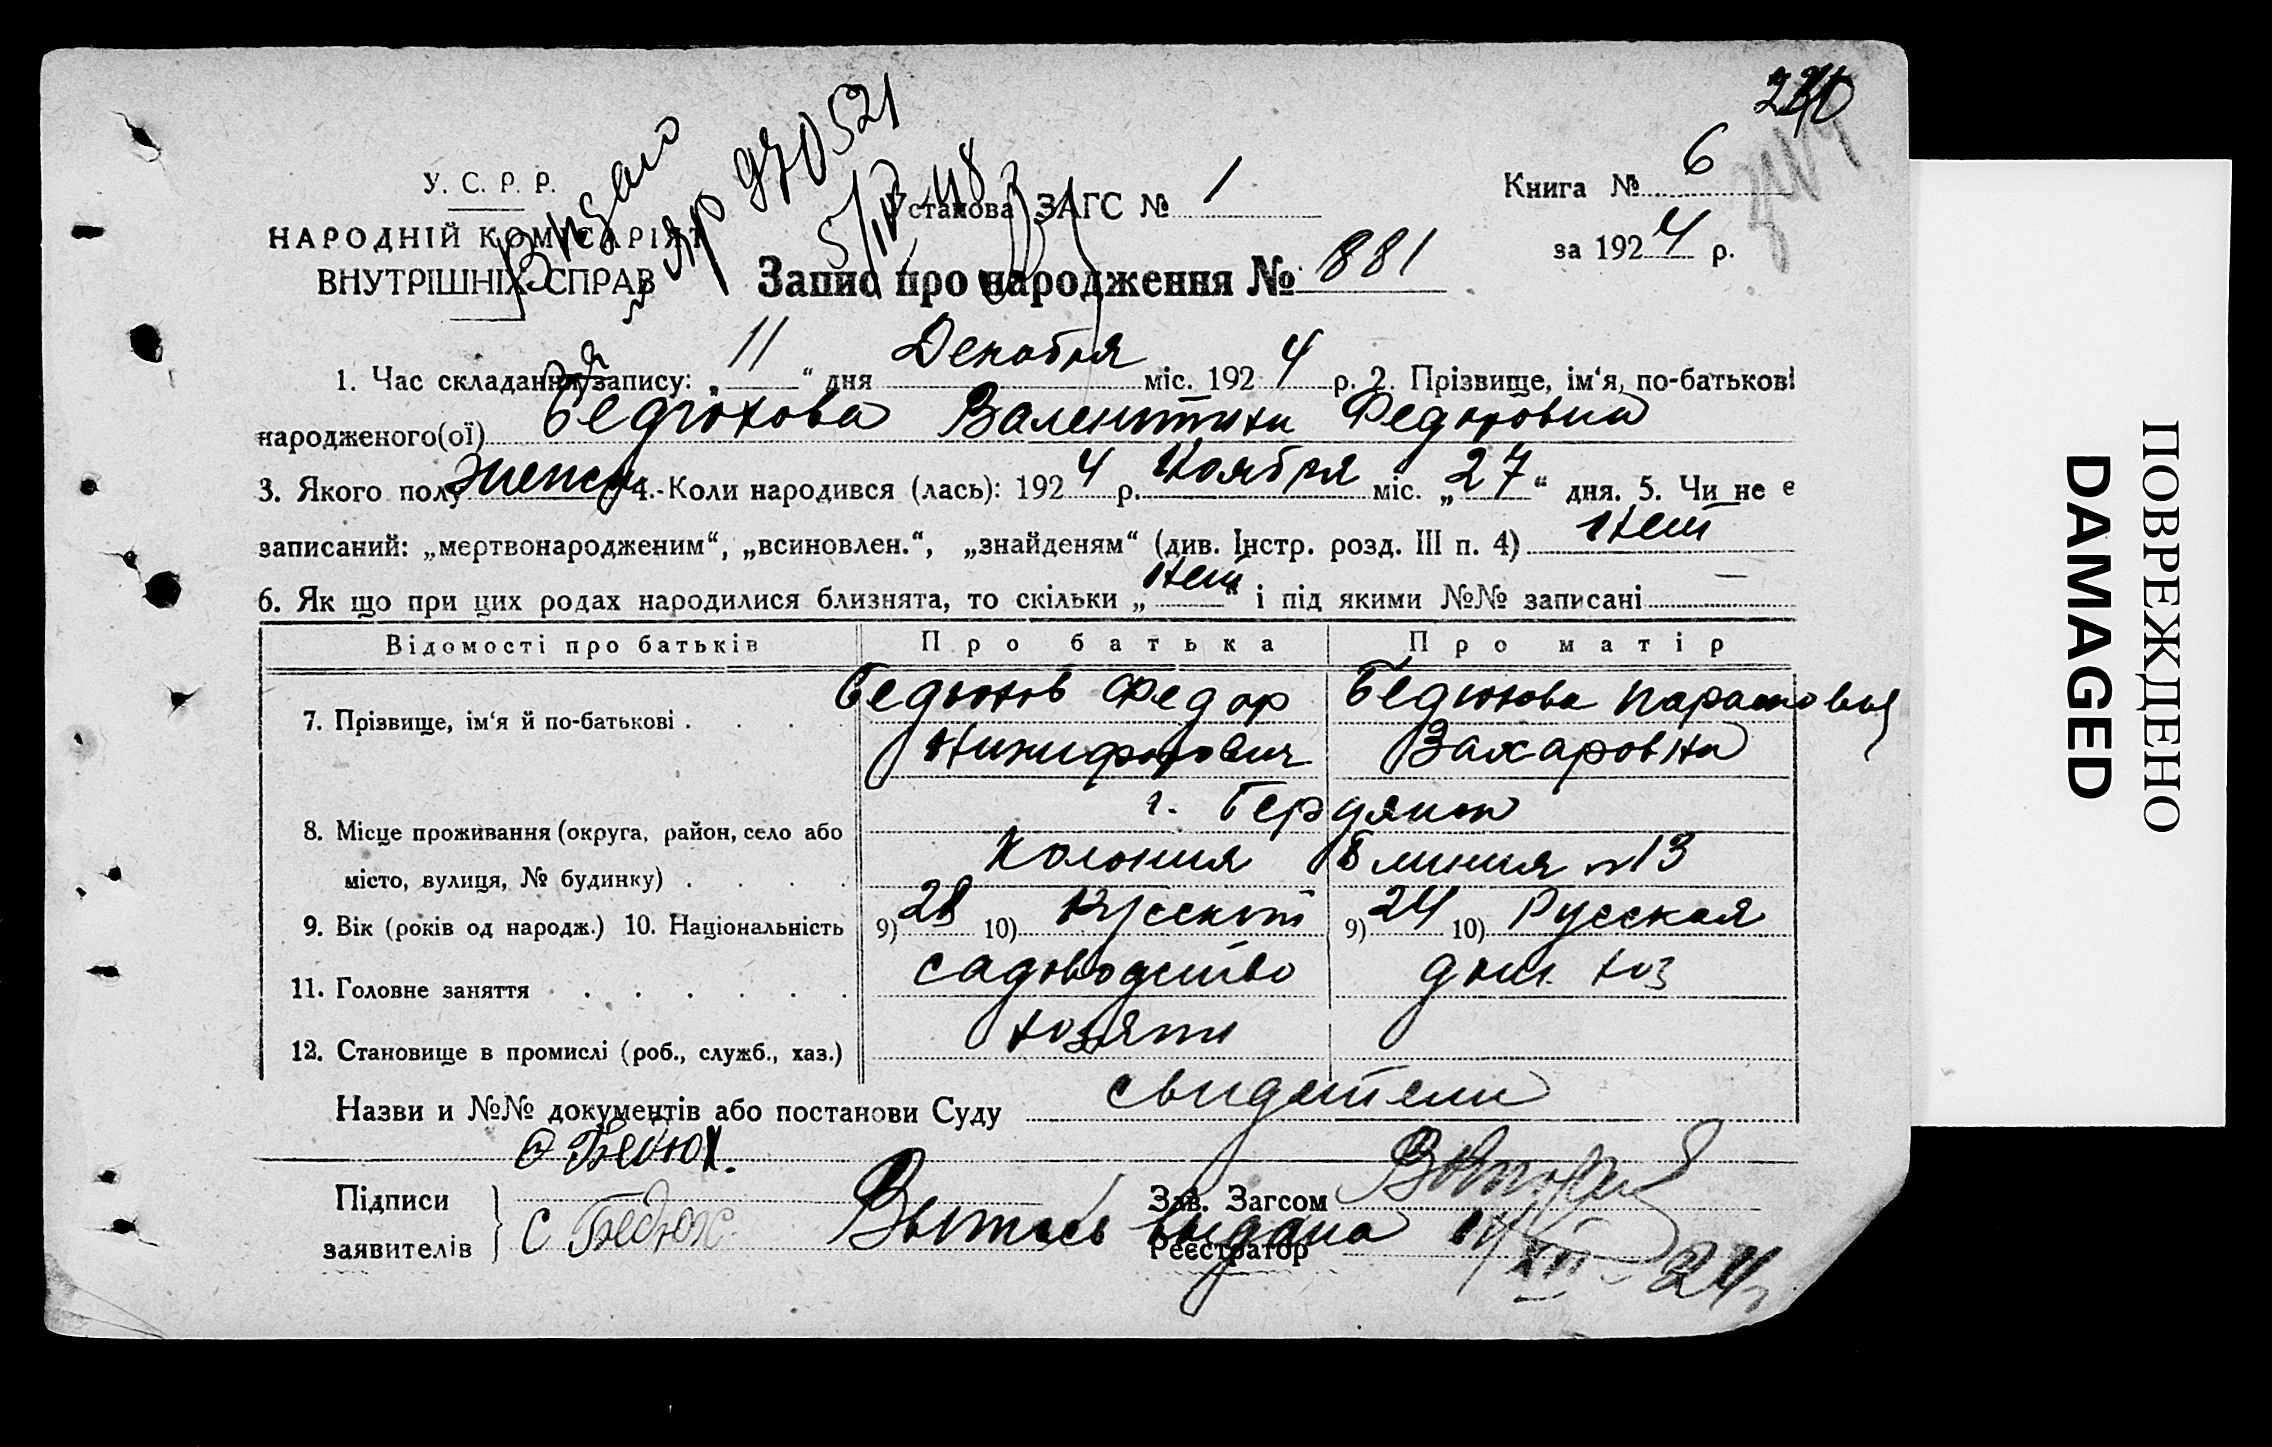 240
У. С. Р. Р.
НАРОДНІЙ КОМІСАРІЯТ
ВНУТРІШНІХ СПРАВ
Видано
ЯР 970521
5/IV 48
Установа ЗАГС № 1
Книга № 6
за 1924 р.
Запис про народження № 881
1. Час складання запису: „ 11 “ дня Декабря міс. 1924 р. 2. Прізвище, ім‘я, по-батькові
народженого(ої) Бедюхова Валентина Федоровна
3. Якого полу женск 4. Коли народився (лась): 1924 р. Ноября міс. „27“ дня. 5. Чи не є
записаний: „мертвонародженим“, „всиновлен.“, „знайденям“ (див. Інстр. розд. III п. 4) Нет
6. Як що при цих родах народилися близнята, то скільки „ Нет “ і під якими №№ записані —
Відомості про батьків Про батька Про матір
7. Прізвище, ім‘я й по-батькові . . . . Бедюхов Федор Бедюхова Парасковья
Никифорович Захаровна
г. Бердянск
8. Місце проживання (округа, район, село або
Колония 8 линия №13
місто, вулиця, № будинку) . . . .
9. Вік (років од народж.) 10. Національність 9) 28 10) Русский 9) 24 10) Русская
11. Головне заняття . . . . . . садоводство дом. хоз
12. Становище в промислі (роб., служб., хаз.) хозяин
Назви и №№ документів або постанови Суду свидетели
Бедюх.
Підписи
заявителів
С Бедюх
Зав. Загсом
Реєстратор
Выпись выдана 14/XII-24 г
ПОВРЕЖДЕНО
DAMAGED